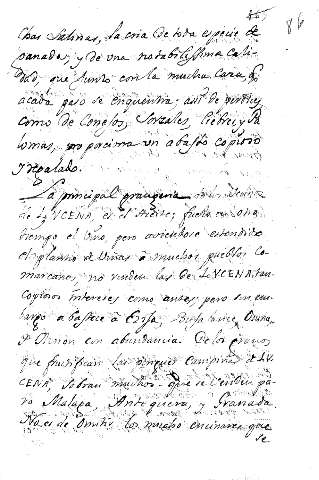 chas Salinas, la cria de toda especie de
ganados, y de una notabilissima cali-
dad, que junto con la mucha Caza, q
acada paso se enquentra; asi de
como de Conejos, Zorzales, Liebres, y Pa
lomas, proporciona un abasto copioso
y regalado.
La principal grangeria
de LUCENA, es el Aceite; fuelo en otro
tiempo el vino, pero aviendose estendido
el plantio de Viñas à muchos pueblos co-
marcanos, no rinden las de LUCENA, tan
copiosos intereses como antes; pero sin em-
bargo abastece à Ezija, Osuna,
y con abundancia. De los granos,
que fructifican las pingues campiñas de LU
CENA, sobran muchos, que se
ra Malaga, Antequera, y Granada.
No es de omitir los mucho encinares que
se
86